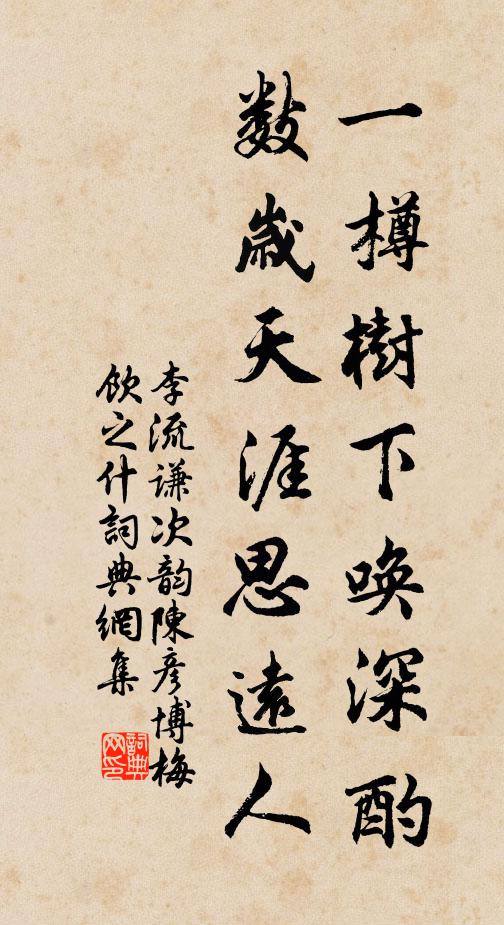 一樽樹下喚深酌
數歲天涯思遠人
李流謙次韵陳彥博梅
飲之什詞典網集
詞典網印